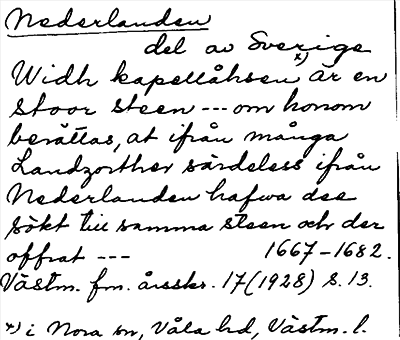 Nederlanden
del av Sverige
Widh kapellåhsen *) är en
stoor steen --- om honom
berättas, at ifrån många
Landzorther särdeless ifrån
Nederlanden hafwa dee
sökt till samma steen och der
offrat --- 1667-1682.
Västm. fm. årsskr. 17(1928) s. 13.
*) i Nora sn, Våla hd, Västm. l.